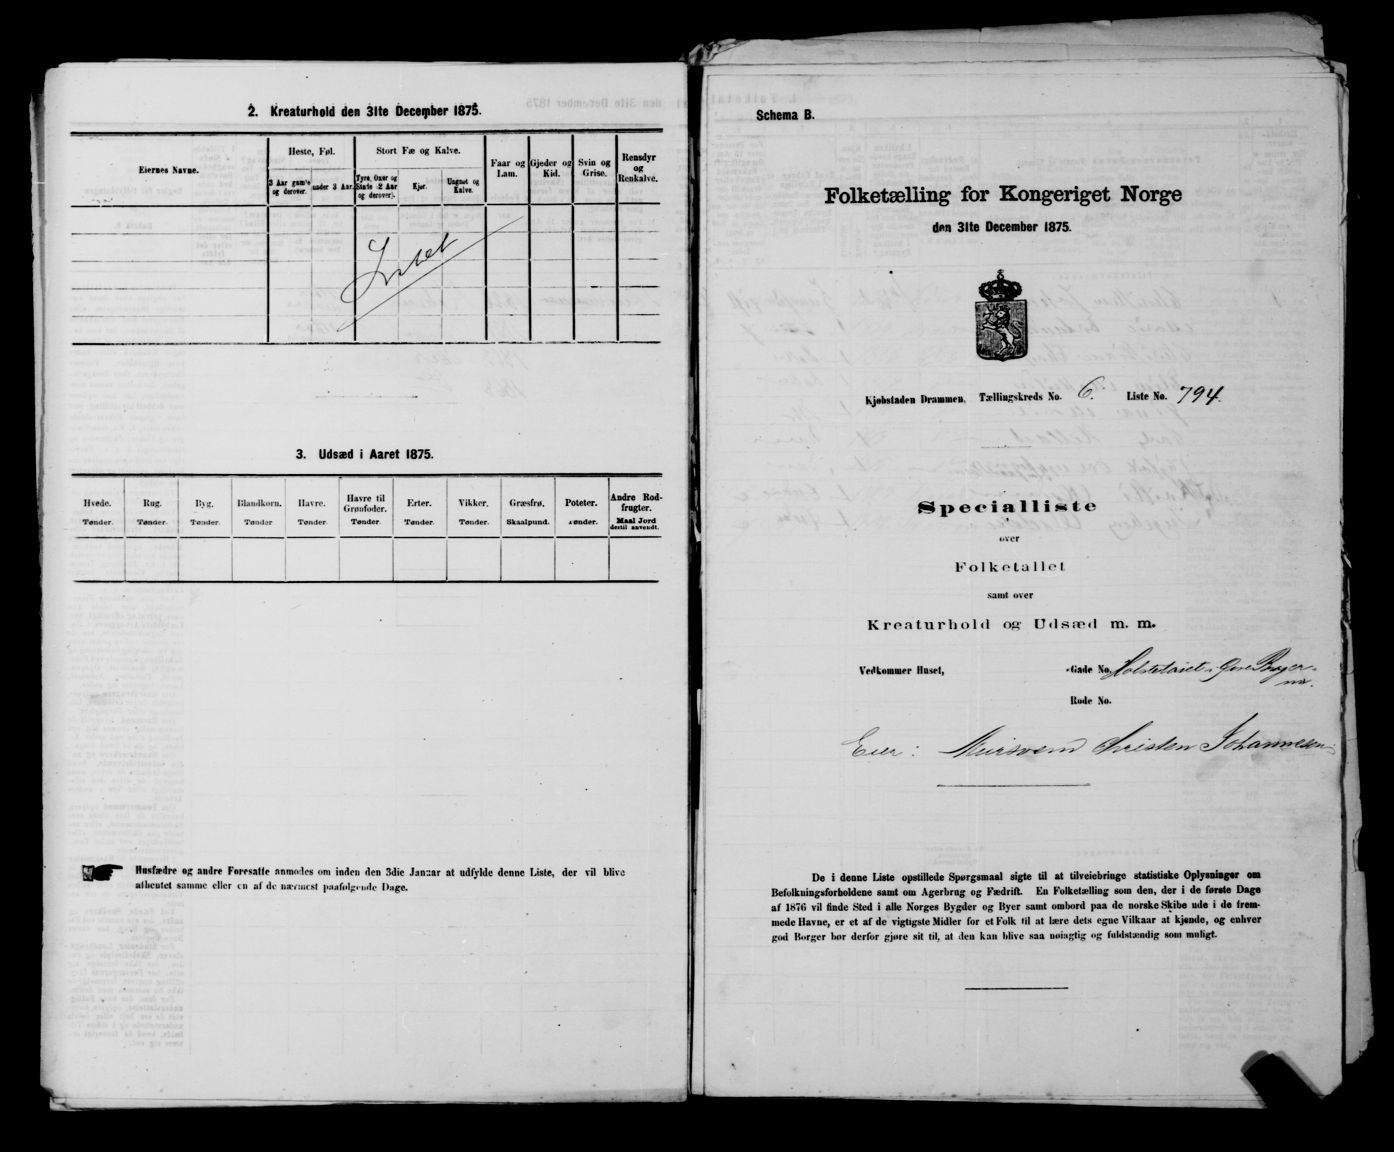 2. Kreaturhold den 31te December 1875.
Eiernes Navne.
Heste, Føl.
3 Aar gamle og derover.
under 3 Aar.
Stort Fæ og Kalve.
Tyre, Oxer og Stude (2 Aar og derover).
Kjør.
Ungnøt og Kalve.
Faar og Lam.
Gjeder og Kid.
Svin og Grise.
Rensdyr og Renkalve.
Intet
3. Udsæd i Aaret 1875.
Hvede. Rug. Byg. Blandkorn. Havre. Havre til Grønfoder. Erter. Vikker. Græsfrø. Poteter. Andre Rodfrugter.
Tønder. Tønder. Tønder. Tønder Tønder. Tønder. Tønder. Tønder. Skaalpund. Tønder. Maal Jord dertil anvendt.
Husfædre og andre Foresatte anmodes om inden den 3die Januar at udfylde denne Liste, der vil blive
afhentet samme eller en af de nærmest paafølgende Dage.
Schema B.
Folketælling for Kongeriget Norge
den 31te December 1875.
Kjøbstaden Drammen. Tællingskreds No. 6. Liste No. 794.
Specialliste
over
Folketallet
samt over
Kreaturhold og Udsæd m. m.
Vedkommer Huset, Gade No.
Rode No.
Eier: Muirsvend Christen Johannesen
De i denne Liste opstillede Spørgsmaal sigte til at tilveiebringe statistiske Oplysninger om
Befolkningsforholdene samt om Agerbrug og Fædrift. En Folketælling som den, der i de første Dage
af 1876 vil finde Sted i alle Norges Bygder og Byer samt ombord paa de norske Skibe ude i de frem-
mede Havne, er et af de vigtigste Midler for et Folk til at lære dets egne Vilkaar at kjende, og enhver
god Borger bør derfor gjøre sit til, at den kan blive saa nøiagtig og fuldstændig som muligt.